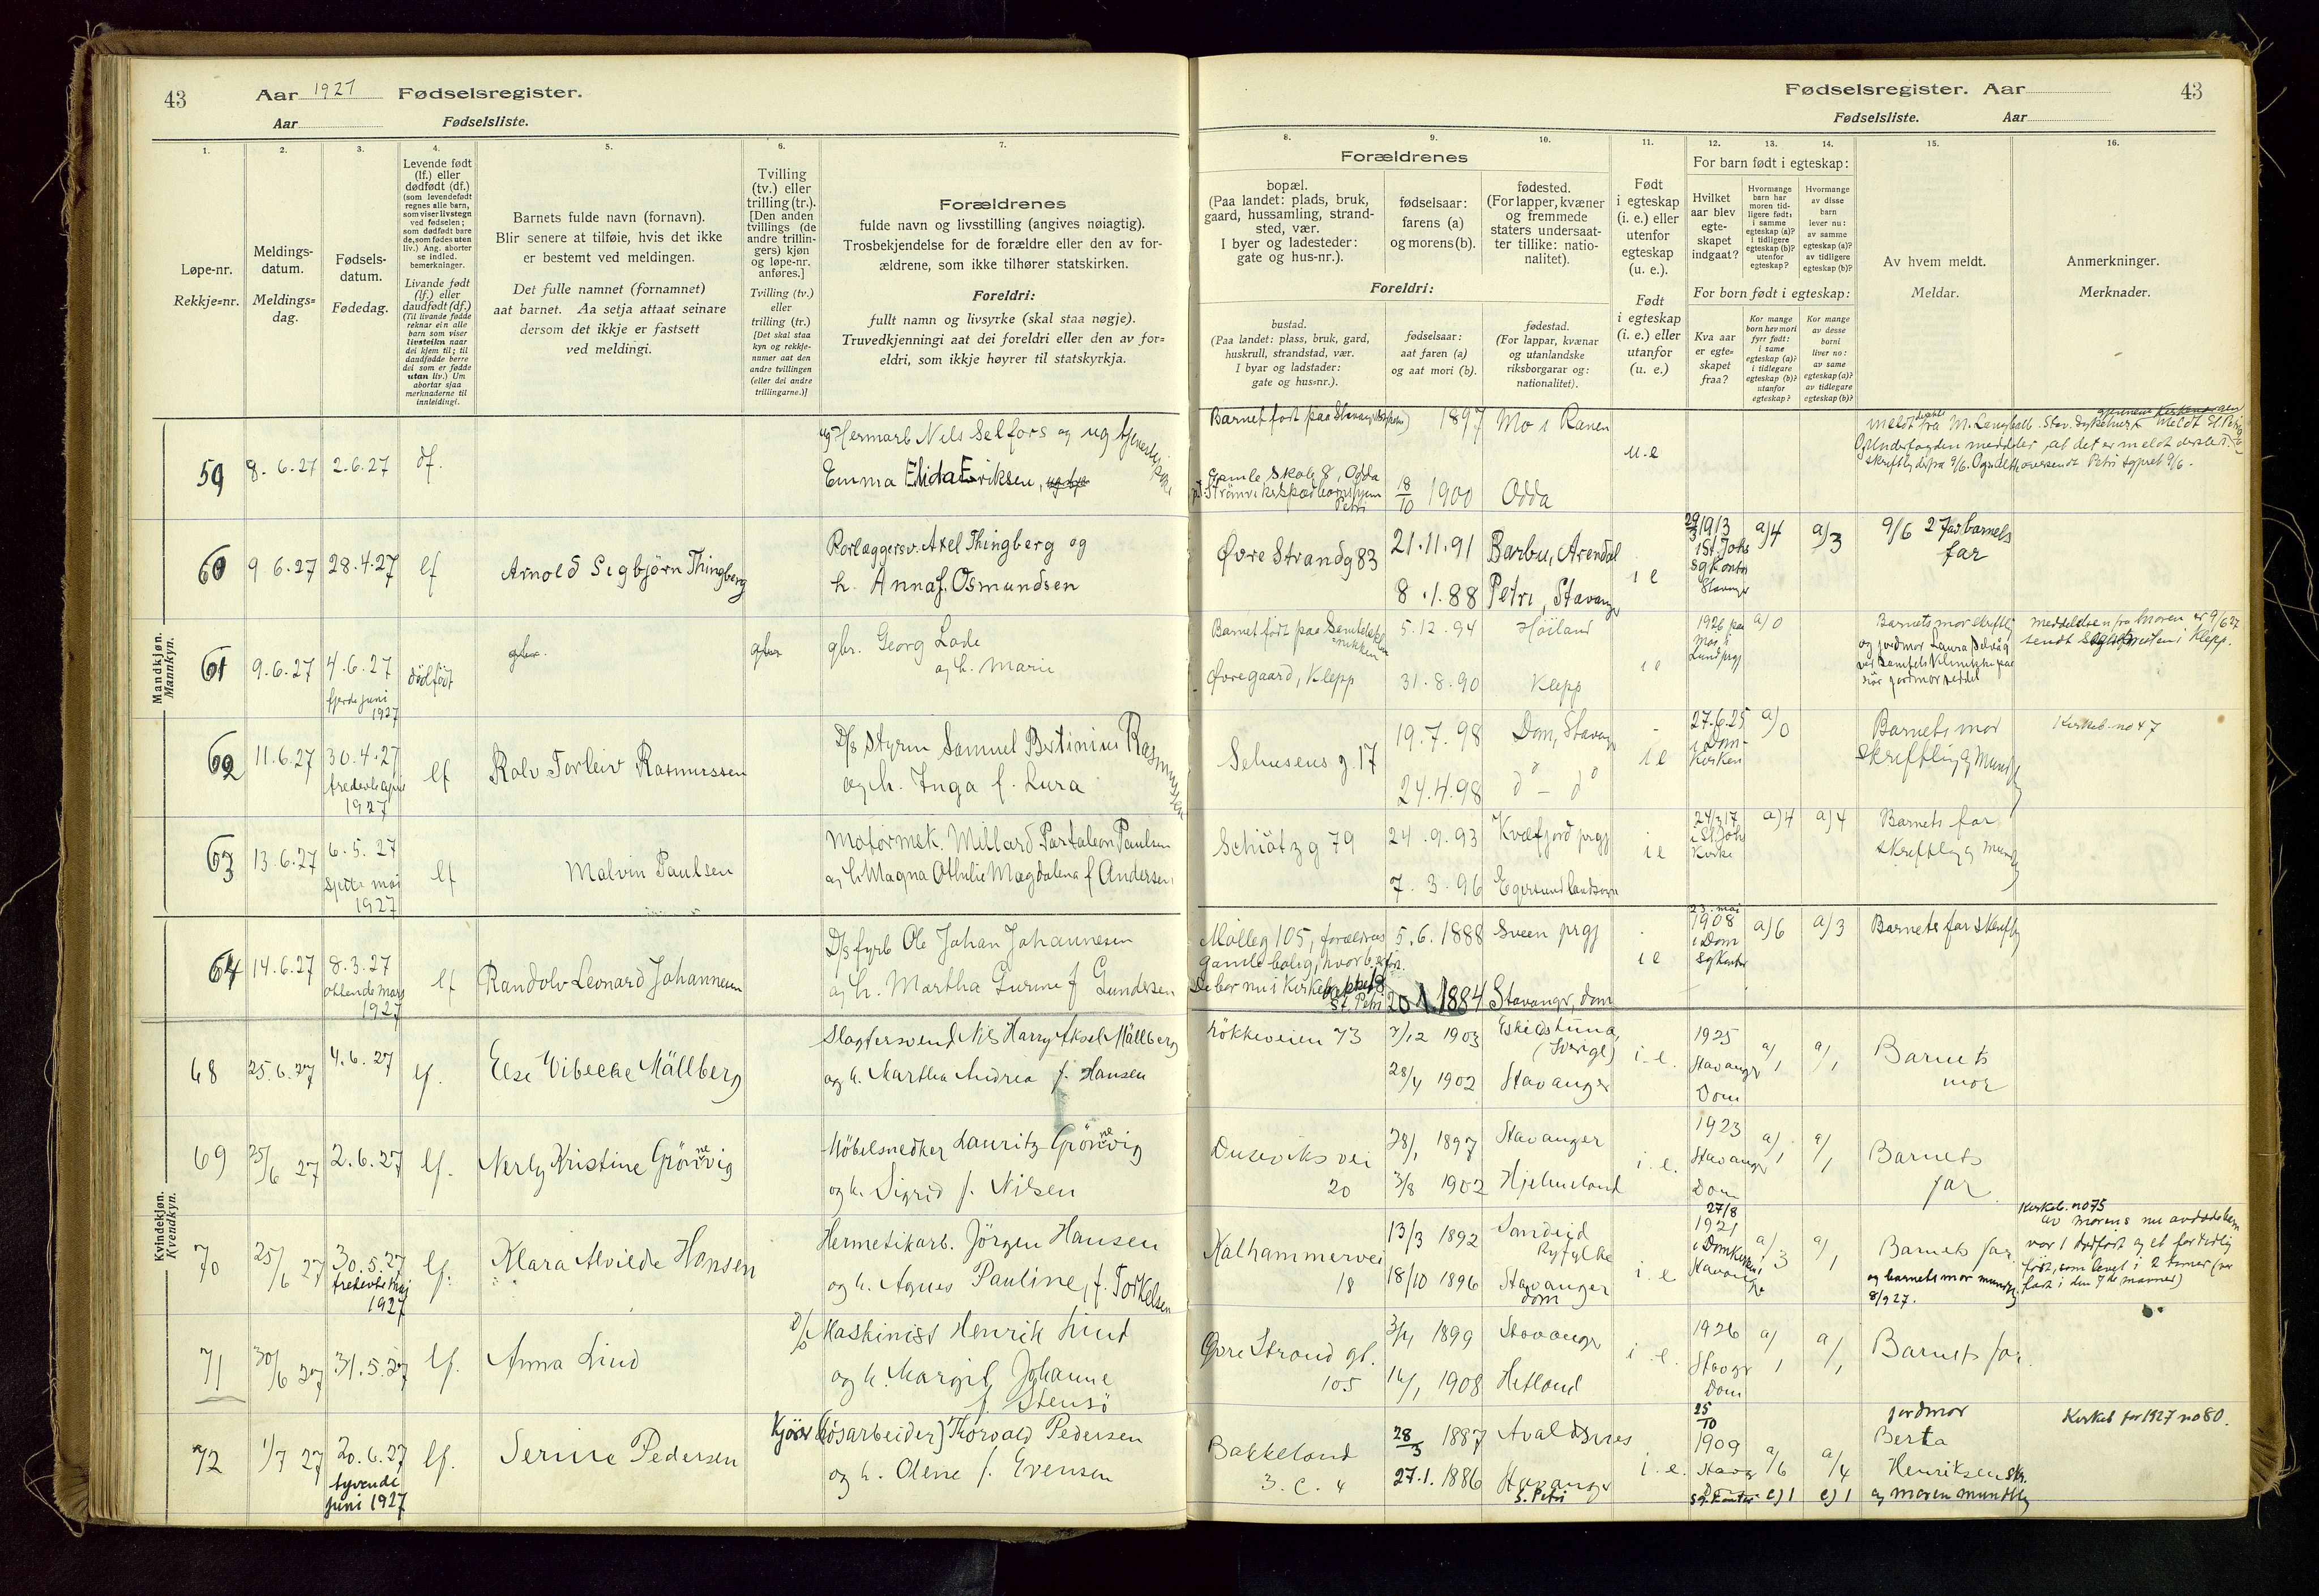 43
Aar 1927 Fødselsregister.
Aar Fødselsliste.
1.
2.
3.
4.
5.
6.
7.
Løpe-nr.
Rekkje=nr.
Meldings-
datum.
Meldings=
dag.
Fødsels-
datum.
Fødedag.
Levende født
(lf.) eller
dødfødt (df.)
(som levendefødt
regnes alle barn,
som viser livstegn
ved fødselen;
som dødfødt bare
de, som fødes uten
liv.) Ang. aborter
se indled.
bemerkninger.
Livande født
(lf.) eller
daudfødt (df.)
(Til livande fødde
reknar ein alle
barn som viser
livsteikn naar
dei kjem til; til
daudfødde berre
dei som er fødde
utan liv.) Um
abortar sjaa
merknaderne til
innleidingi.
Barnets fulde navn (fornavn).
Blir senere at tilføie, hvis det ikke
er bestemt ved meldingen.
Det fulle namnet (fornamnet)
aat barnet. Aa setja attaat seinare
dersom det ikkje er fastsett
ved meldingi.
Tvilling
(tv.) eller
trilling (tr.).
[Den anden
tvillings (de
andre trillin-
gers) kjøn
og løpe-nr.
anføres.]
Tvilling (tv.)
eller
trilling (tr.)
[Det skal staa
kyn og rekkje-
numer aat den
andre tvillingen
(eller dei andre
trillingarne.)]
Forældrenes
fulde navn og livsstilling (angives nøiagtig).
Trosbekjendelse for de forældre eller den av for-
ældrene, som ikke tilhører statskirken.
Foreldri:
fullt namn og livsyrke (skal staa nøgje).
Truvedkjenningi aat dei foreldri eller den av for=
eldri, som ikkje høyrer til statskyrkja.
Mandkjøn.
Mannkyn.
59 8.6.27 2.6.27 df.
ug Hermarb Nils Selfors og ug
Emma Elida Eriksen,
60 9 6.27 28.4.27 lf Arnold Sigbjörn Thingberg
Rorlæggersv. Axel Thingberg og
h. Anna f. Osmundsen
61 9.6.27 4.6.27
fjerde juni
1927
dödfödt
gbr. Georg Lode
og h. Marie
62 11.6.27 30.4.27
1927
lf Rolv Torleiv Rasmussen
D/s Styrm Samuel Bertinius Rasmussen
og h. Inga f. Lura
63 13.6.27 6.5.27
Sjette mai
1927
lf Malvin Paulsen
Motormek. Millard Partaleon Paulsen
og h. Magna Othilie Magdalena f Andersen
64 14.6.27 8.3.27
ottende mars
1927
lf Randolv Leonard Johannesen
D/s fyrb Ole Johan Johannesen
og h. Martha Gurine f Gundersen
Kvindekjøn.
Kvendkyn.
68 25.6.27 4.6.27 lf. Else Vibecke Mällberg
Slagtersvend Nils Harry Aksel Mällberg
og h. Martha Andrea f. Hansen
69 25/6 27 2.6.27 lf. Nerly Kristine Grönvig
Möbelsnedker Lauritz Grönvig
og h. Sigrid f. Nilsen
70 25/6 27 30.5.27
1927
lf. Klara Alvilde Hansen
Hermetikarb. Jörgen Hansen
og h. Agnes Pauline, f. Torkelsen
71 30/6 27 31.5.27 lf. Anna Lind
D/s Maskinist Henrik Lind
og h. Margit Johanne
f. Stensö
72 1/7 27 20.6.27
tyvende
juni 1927
lf. Serine Pedersen
Kjörer (lösarbeider) Thorvald Pedersen
og h. Olene f. Evensen
Fødselsregister. Aar 43
Fødselsliste. Aar
8.
9.
10.
11.
12.
13.
14.
15.
16.
Forældrenes
bopæl.
(Paa landet: plads, bruk,
gaard, hussamling, strand-
sted, vær.
I byer og ladesteder:
gate og hus-nr.).
fødselsaar:
farens (a)
og morens (b).
fødested.
(For lapper, kvæner
og fremmede
staters undersaat-
ter tillike: natio-
nalitet).
Foreldri:
bustad.
(Paa landet: plass, bruk, gard,
huskrull, strandstad, vær.
I byar og ladstader:
gate og hus=nr.).
fødselsaar:
aat faren (a)
og aat mori (b).
fødestad.
(For lappar, kvænar
og utanlandske
riksborgarar og:
nationalitet).
Født
i egteskap
(i. e.) eller
utenfor
egteskap
(u. e.).
Født
i egteskap
(i. e.) eller
utanfor
(u. e.)
For barn født i egteskap:
Hvilket
aar blev
egte-
skapet
indgaat?
Hvormange
barn har
moren tid-
ligere født:
i samme
egteskap (a)?
i tidligere
egteskap (b)?
utenfor
egteskap?
Hvormange
av disse
barn
lever nu:
av samme
egteskap (a)?
av tidligere
egteskap (b)?
For born født i egteskap:
Kva aar
er egte=
skapet
fraa?
Kor mange
born hev mori
fyrr født:
i same
egteskap (a)?
i tidlegare
egteskap (b)?
utanfor
egteskap?
Kor mange
av desse
borni
liver no:
av same
egteskap (a)?
av tidlegare
egteskap (b)?
Av hvem meldt.
Meldar.
Anmerkninger.
Merknader.
Barnet født paa Stavanger
Gamle Skoleg 8, Odda
Petri
1897 Mo i Ranen
18/10 1900 Odda
u.e
Øvre Strandg 83
21.11.91 Barbu, Arendal
8.1.88 Petri, Stavanger
i e
1913
i St. Johs
Stavanger
a)4 a)3
9/6 27 av barnets
far
Barnet født paa
Øvregaard, Klepp
5.12.94 Höiland
31.8.90 Klepp
i e
1926 paa
a)0
Barnets mor skriftl.
og jordmor Laura Selvåg
meddelelsen fra Moren er 9/6 27
sendt Sognepresten i Klepp.
Sehuseus g. 17
19.7.98 Dom, Stavanger
24.4.98 do - do
i e
27.6.25
i Dom-
kirken
a)0
Barnets mor
skriftlig og mundtlig
Kirkeb. no 47
Schiötz g 79
24.9.93 Kvæfjord prgj
7.3.96 Egersund landsogn
i e
24/3 17
i St Johs
Kirke
a)4 a)4
Barnets far
skriftlig og mundtlig
Mölleg 105, forældres
gamle bolig, hvor b. er født.
De bor nu i Kirkebakken 8
St. Petri
5.6.1888 Sveen prgj
20.1.1884 Stavanger, dom
i e
23. mai
1908
i Dom
sgkontor
a)6 a)3
Barnets far skriftlig
Lökkeveien 73
7/12 1903 Eskilstuna,
(Sverige)
28/4 1902 Stavanger
i. e.
1925
Stavanger
Dom
a/1 a/1
Barnets
mor
Duseviks vei
20
28/1 1897 Stavanger
3/8 1902 Hjelmeland
i. e.
1923
Stavanger
Dom
a/1 a/1
Barnets
far
Kalhammervei
18
13/3 1892 Sandeid
Ryfylke
18/10 1896 Stavanger
dom
i. e
27/8
1921
i Domkirken i
Stavanger
a/3 a/1
Barnets far
og barnets mor mundtlig
8/9 27.
Kirkeb. no 75
Av morens nu avdøde barn
var 1 dødfødt og et for tidlig
født, som levet i 2 timer (var
født i den 7de maaned)
Øvre Strand gt.
105
3/4 1899 Stavanger
16/1 1908 Hetland
i. e.
1926
Stavgr
Dom
a/1 a/1
Barnets far.
Bakkeland
3. C. 4
28/3 1887 Avaldsnes
27.1.1886 Stavanger
S. Petri
i. e.
25/10
1909
Stavgr
sg. kontor
a/6 a/4
c) 1 c) 1
jordmor
Berta
Henriksen skr.
og moren mundtlig
Kirkeb for 1927 no 80.